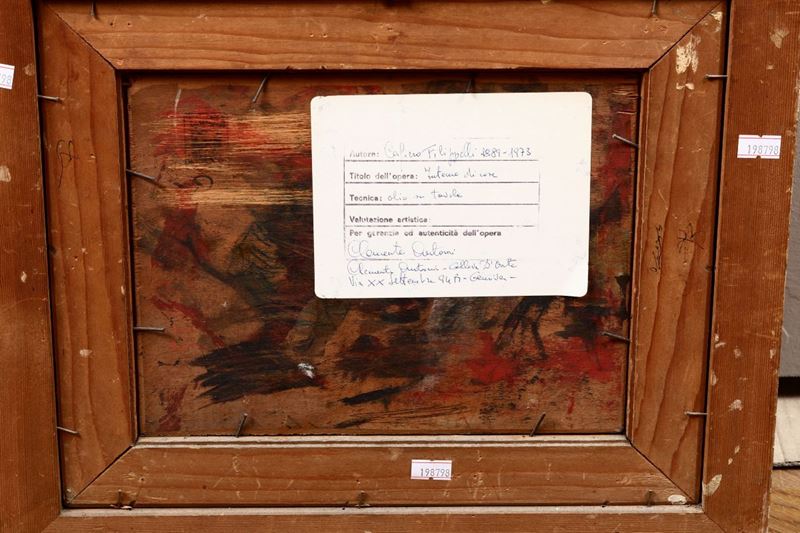 798
198798
Autore: Cafiero Filippelli 1889-1973
Titolo dell'opera: Interno di casa
Tecnica: olio su tavola
Valutazione artistica:
Per garanzia ed autenticità dell'opera
Clemente
Clemente - Galleria D'Arte
Via XX Settembre - Genova -
198798